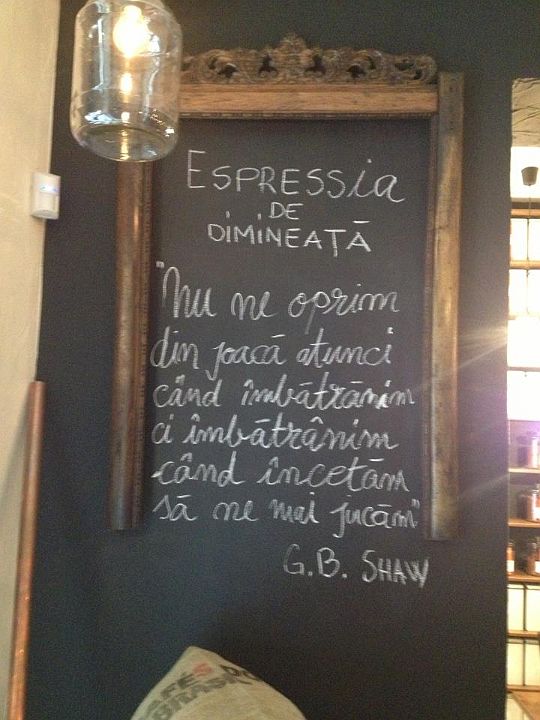 ESPRESSia
DE
DIMINEAȚĂ
"Nu ne oprim
din joacă atunci
când îmbătrânim
ci îmbătrânim
când încetăm
să ne mai jucăm"
G.B. SHAW